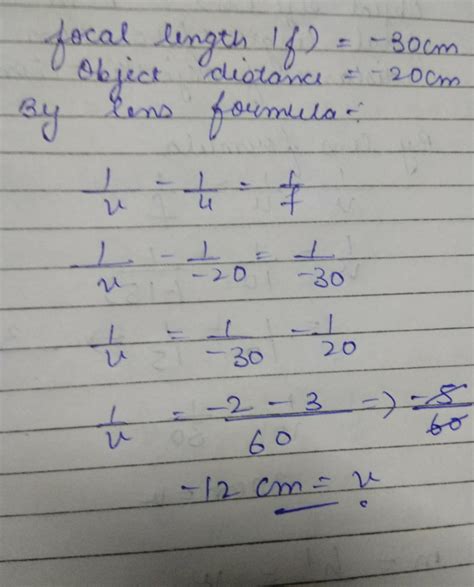 focal length (f) = -30cm
Object distance = -20cm
By lens formula:-
1/v - 1/u = 1/f
1/v - 1/-20 = 1/-30
1/v = 1/-30 - 1/20
1/v = -2 - 3/60 => -5/60
-12 cm = v